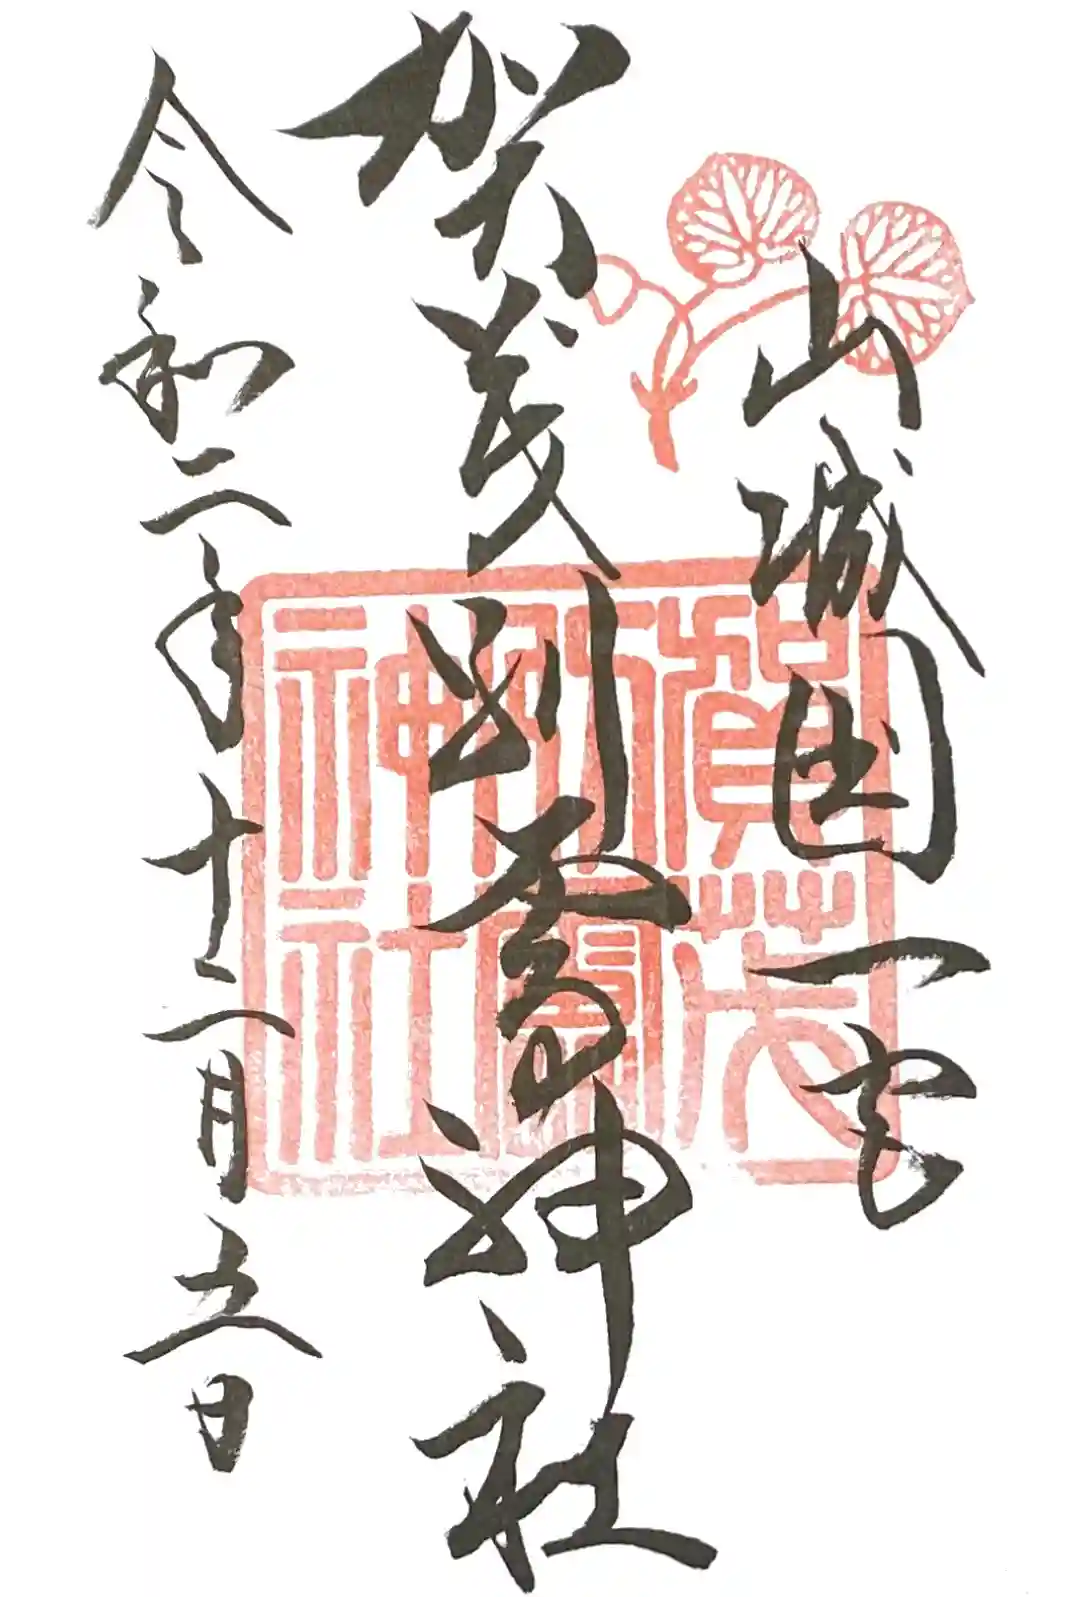 山城国一宮
賀茂別雷神社
令和二年十二月五日
賀茂
別雷
神社